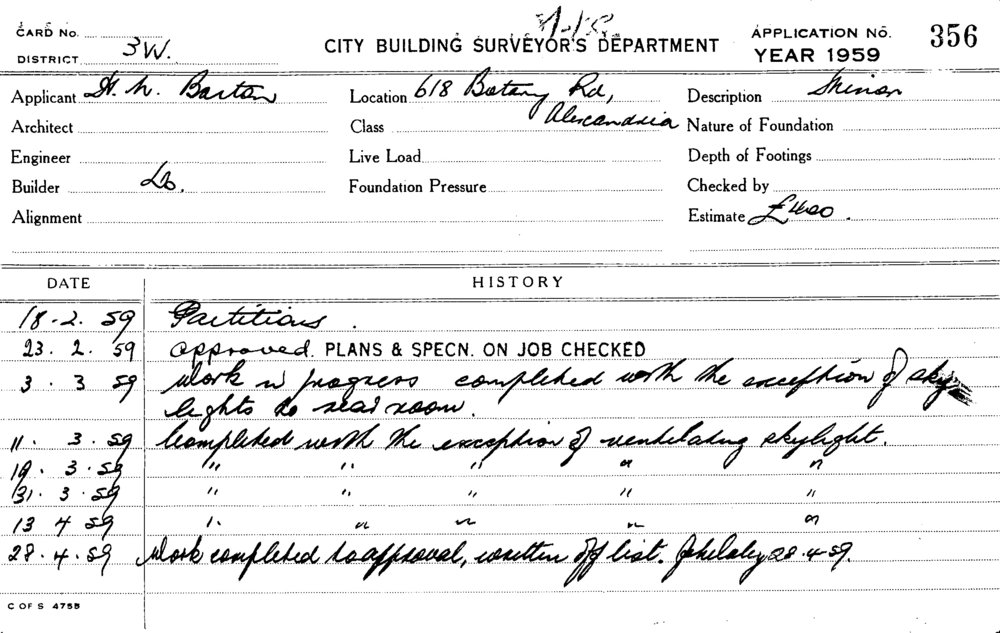 CARD No.
DISTRICT 3W.
CITY BUILDING SURVEYOR'S DEPARTMENT
APPLICATION No. 356
YEAR 1959
Applicant H. M. Barton
Location 618 Botany Rd,
Alexandria
Description Minor
Architect
Class
Nature of Foundation
Engineer
Live Load
Depth of Footings
Builder Do.
Foundation Pressure
Checked by
Alignment
Estimate £400.
DATE HISTORY
18.2.59 Partitions.
23.2.59 Approved. PLANS & SPECN. ON JOB CHECKED
3.3.59 Work in progress completed with the exception of sky
lights to rear room.
11.3.59 Completed with the exception of ventilating skylight.
19.3.59 " " " " "
31.3.59 " " " " "
13 4 59 " " " " "
28.4.59 Work completed to approval, written off list. 28.4.59.
C OF S 475B